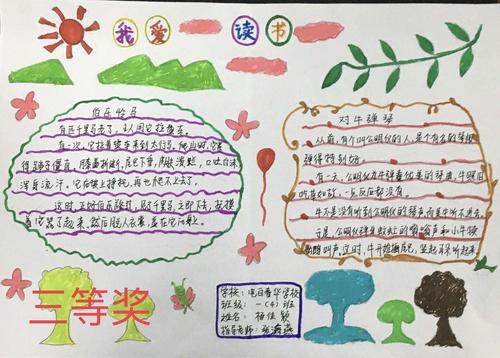 我爱读书
伯乐怜马
有匹千里马老了,主人用它拉盐车。
有一次,它拉着盐车来到太行山,爬山时,它累
得蹄子僵直,膝盖折断,尾巴下垂,
浑身流汗。它在坡上挣扎,再也爬不上去了。
这时,正好伯乐路过,
着它哭了起来,然后脱下衣裳,盖在它
对牛弹琴
从前,有个叫公明仪的人,是个有名的琴师
弹得特别好。
有一天,公明仪对牛弹奏优美的琴曲,牛眼
吃草如故,一点反应都没有。
牛不是没有听到公明仪的琴声,而是听不进去
于是,公明仪弹奏蚊虻的嗡嗡声和小牛犊
叫声,立时,牛开始摇尾巴,竖起耳朵听起来
学校:电白春华学校
班级:一(4)班
姓名:杨佳颖
指导老师:张
三等奖